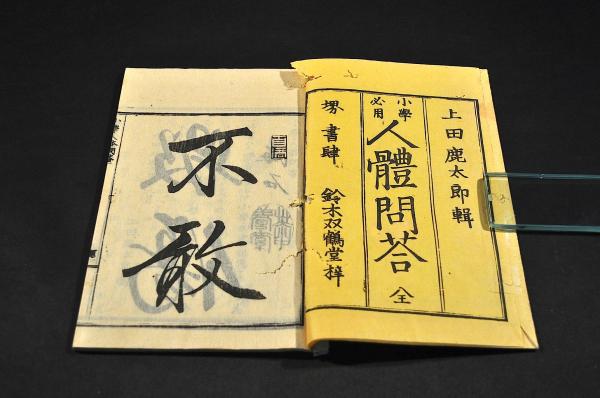 上田鹿太郎輯
小學
必用
人體問荅 全
堺 書肆 鈴木双鶴堂梓
不敢